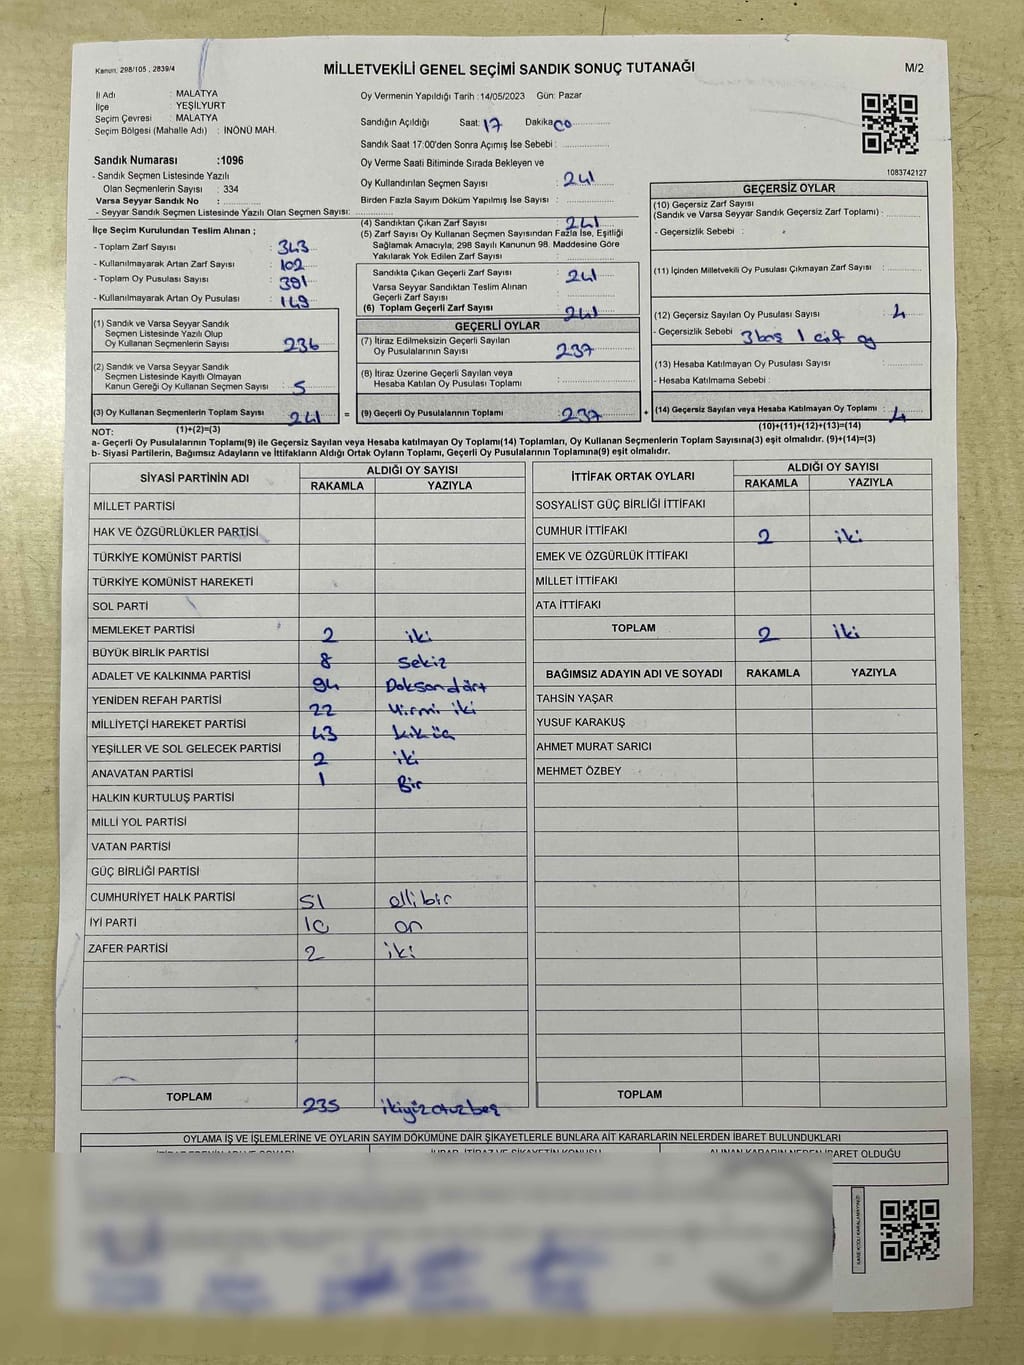 Kanun: 298/105 , 2839/4
MİLLETVEKİLİ GENEL SEÇİMİ SANDIK SONUÇ TUTANAĞI
M/2
İl Adı : MALATYA
İlçe : YEŞİLYURT
Seçim Çevresi : MALATYA
Seçim Bölgesi (Mahalle Adı) : İNÖNÜ MAH.
Oy Vermenin Yapıldığı Tarih :14/05/2023 Gün: Pazar
Sandığın Açıldığı Saat: 17 Dakika: 00
Sandık Saat 17:00'den Sonra Açımış İse Sebebi :
Oy Verme Saati Bitiminde Sırada Bekleyen ve
Oy Kullandırılan Seçmen Sayısı : 241
Birden Fazla Sayım Döküm Yapılmış İse Sayısı :
1083742127
Sandık Numarası :1096
- Sandık Seçmen Listesinde Yazılı
Olan Seçmenlerin Sayısı : 334
Varsa Seyyar Sandık No :
- Seyyar Sandık Seçmen Listesinde Yazılı Olan Seçmen Sayısı:
İlçe Seçim Kurulundan Teslim Alınan ;
- Toplam Zarf Sayısı : 343
- Kullanılmayarak Artan Zarf Sayısı : 102
- Toplam Oy Pusulası Sayısı : 391
- Kullanılmayarak Artan Oy Pusulası : 149
(1) Sandık ve Varsa Seyyar Sandık
Seçmen Listesinde Yazılı Olup
Oy Kullanan Seçmenlerin Sayısı : 236
(2) Sandık ve Varsa Seyyar Sandık
Seçmen Listesinde Kayıtlı Olmayan
Kanun Gereği Oy Kullanan Seçmen Sayısı : 5
(3) Oy Kullanan Seçmenlerin Toplam Sayısı : 241 =
(4) Sandıktan Çıkan Zarf Sayısı : 241
(5) Zarf Sayısı Oy Kullanan Seçmen Sayısından Fazla İse, Eşitliği
Sağlamak Amacıyla, 298 Sayılı Kanunun 98. Maddesine Göre
Yakılarak Yok Edilen Zarf Sayısı :
Sandıkta Çıkan Geçerli Zarf Sayısı : 241
Varsa Seyyar Sandıktan Teslim Alınan
Geçerli Zarf Sayısı :
(6) Toplam Geçerli Zarf Sayısı : 241
GEÇERLİ OYLAR
(7) İtiraz Edilmeksizin Geçerli Sayılan
Oy Pusulalarının Sayısı : 237
(8) İtiraz Üzerine Geçerli Sayılan veya
Hesaba Katılan Oy Pusulası Toplamı :
(9) Geçerli Oy Pusulalarının Toplamı : 237 +
GEÇERSİZ OYLAR
(10) Geçersiz Zarf Sayısı
(Sandık ve Varsa Seyyar Sandık Geçersiz Zarf Toplamı) :
- Geçersizlik Sebebi :
(11) İçinden Milletvekili Oy Pusulası Çıkmayan Zarf Sayısı :
(12) Geçersiz Sayılan Oy Pusulası Sayısı : 4
- Geçersizlik Sebebi 3 boş 1 çift oy
(13) Hesaba Katılmayan Oy Pusulası Sayısı :
- Hesaba Katılmama Sebebi :
(14) Geçersiz Sayılan veya Hesaba Katılmayan Oy Toplamı : 4
NOT: (1)+(2)=(3)
(10)+(11)+(12)+(13)=(14)
a- Geçerli Oy Pusulalarının Toplamı(9) ile Geçersiz Sayılan veya Hesaba katılmayan Oy Toplamı(14) Toplamları, Oy Kullanan Seçmenlerin Toplam Sayısına(3) eşit olmalıdır. (9)+(14)=(3)
b- Siyasi Partilerin, Bağımsız Adayların ve İttifakların Aldığı Ortak Oyların Toplamı, Geçerli Oy Pusulalarının Toplamına(9) eşit olmalıdır.
SİYASİ PARTİNİN ADI ALDIĞI OY SAYISI
RAKAMLA YAZIYLA
MİLLET PARTİSİ
HAK VE ÖZGÜRLÜKLER PARTİSİ
TÜRKİYE KOMÜNİST PARTİSİ
TÜRKİYE KOMÜNİST HAREKETİ
SOL PARTİ
MEMLEKET PARTİSİ 2 iki
BÜYÜK BİRLİK PARTİSİ 8 sekiz
ADALET VE KALKINMA PARTİSİ 94 Doksandört
YENİDEN REFAH PARTİSİ 22 Yirmi iki
MİLLİYETÇİ HAREKET PARTİSİ 43
YEŞİLLER VE SOL GELECEK PARTİSİ 2 iki
ANAVATAN PARTİSİ 1 Bir
HALKIN KURTULUŞ PARTİSİ
MİLLİ YOL PARTİSİ
VATAN PARTİSİ
GÜÇ BİRLİĞİ PARTİSİ
CUMHURİYET HALK PARTİSİ 51 ellibir
İYİ PARTİ 10 on
ZAFER PARTİSİ 2 iki
TOPLAM 235 ikiyüzotuzbeş
İTTİFAK ORTAK OYLARI ALDIĞI OY SAYISI
RAKAMLA YAZIYLA
SOSYALİST GÜÇ BİRLİĞİ İTTİFAKI
CUMHUR İTTİFAKI 2 iki
EMEK VE ÖZGÜRLÜK İTTİFAKI
MİLLET İTTİFAKI
ATA İTTİFAKI
TOPLAM 2 iki
BAĞIMSIZ ADAYIN ADI VE SOYADI RAKAMLA YAZIYLA
TAHSİN YAŞAR
YUSUF KARAKUŞ
AHMET MURAT SARICI
MEHMET ÖZBEY
TOPLAM
OYLAMA İŞ VE İŞLEMLERİNE VE OYLARIN SAYIM DÖKÜMÜNE DAİR ŞİKAYETLERLE BUNLARA AİT KARARLARIN NELERDEN İBARET BULUNDUKLARI
ALINAN KARARIN NEDEN İBARET OLDUĞU